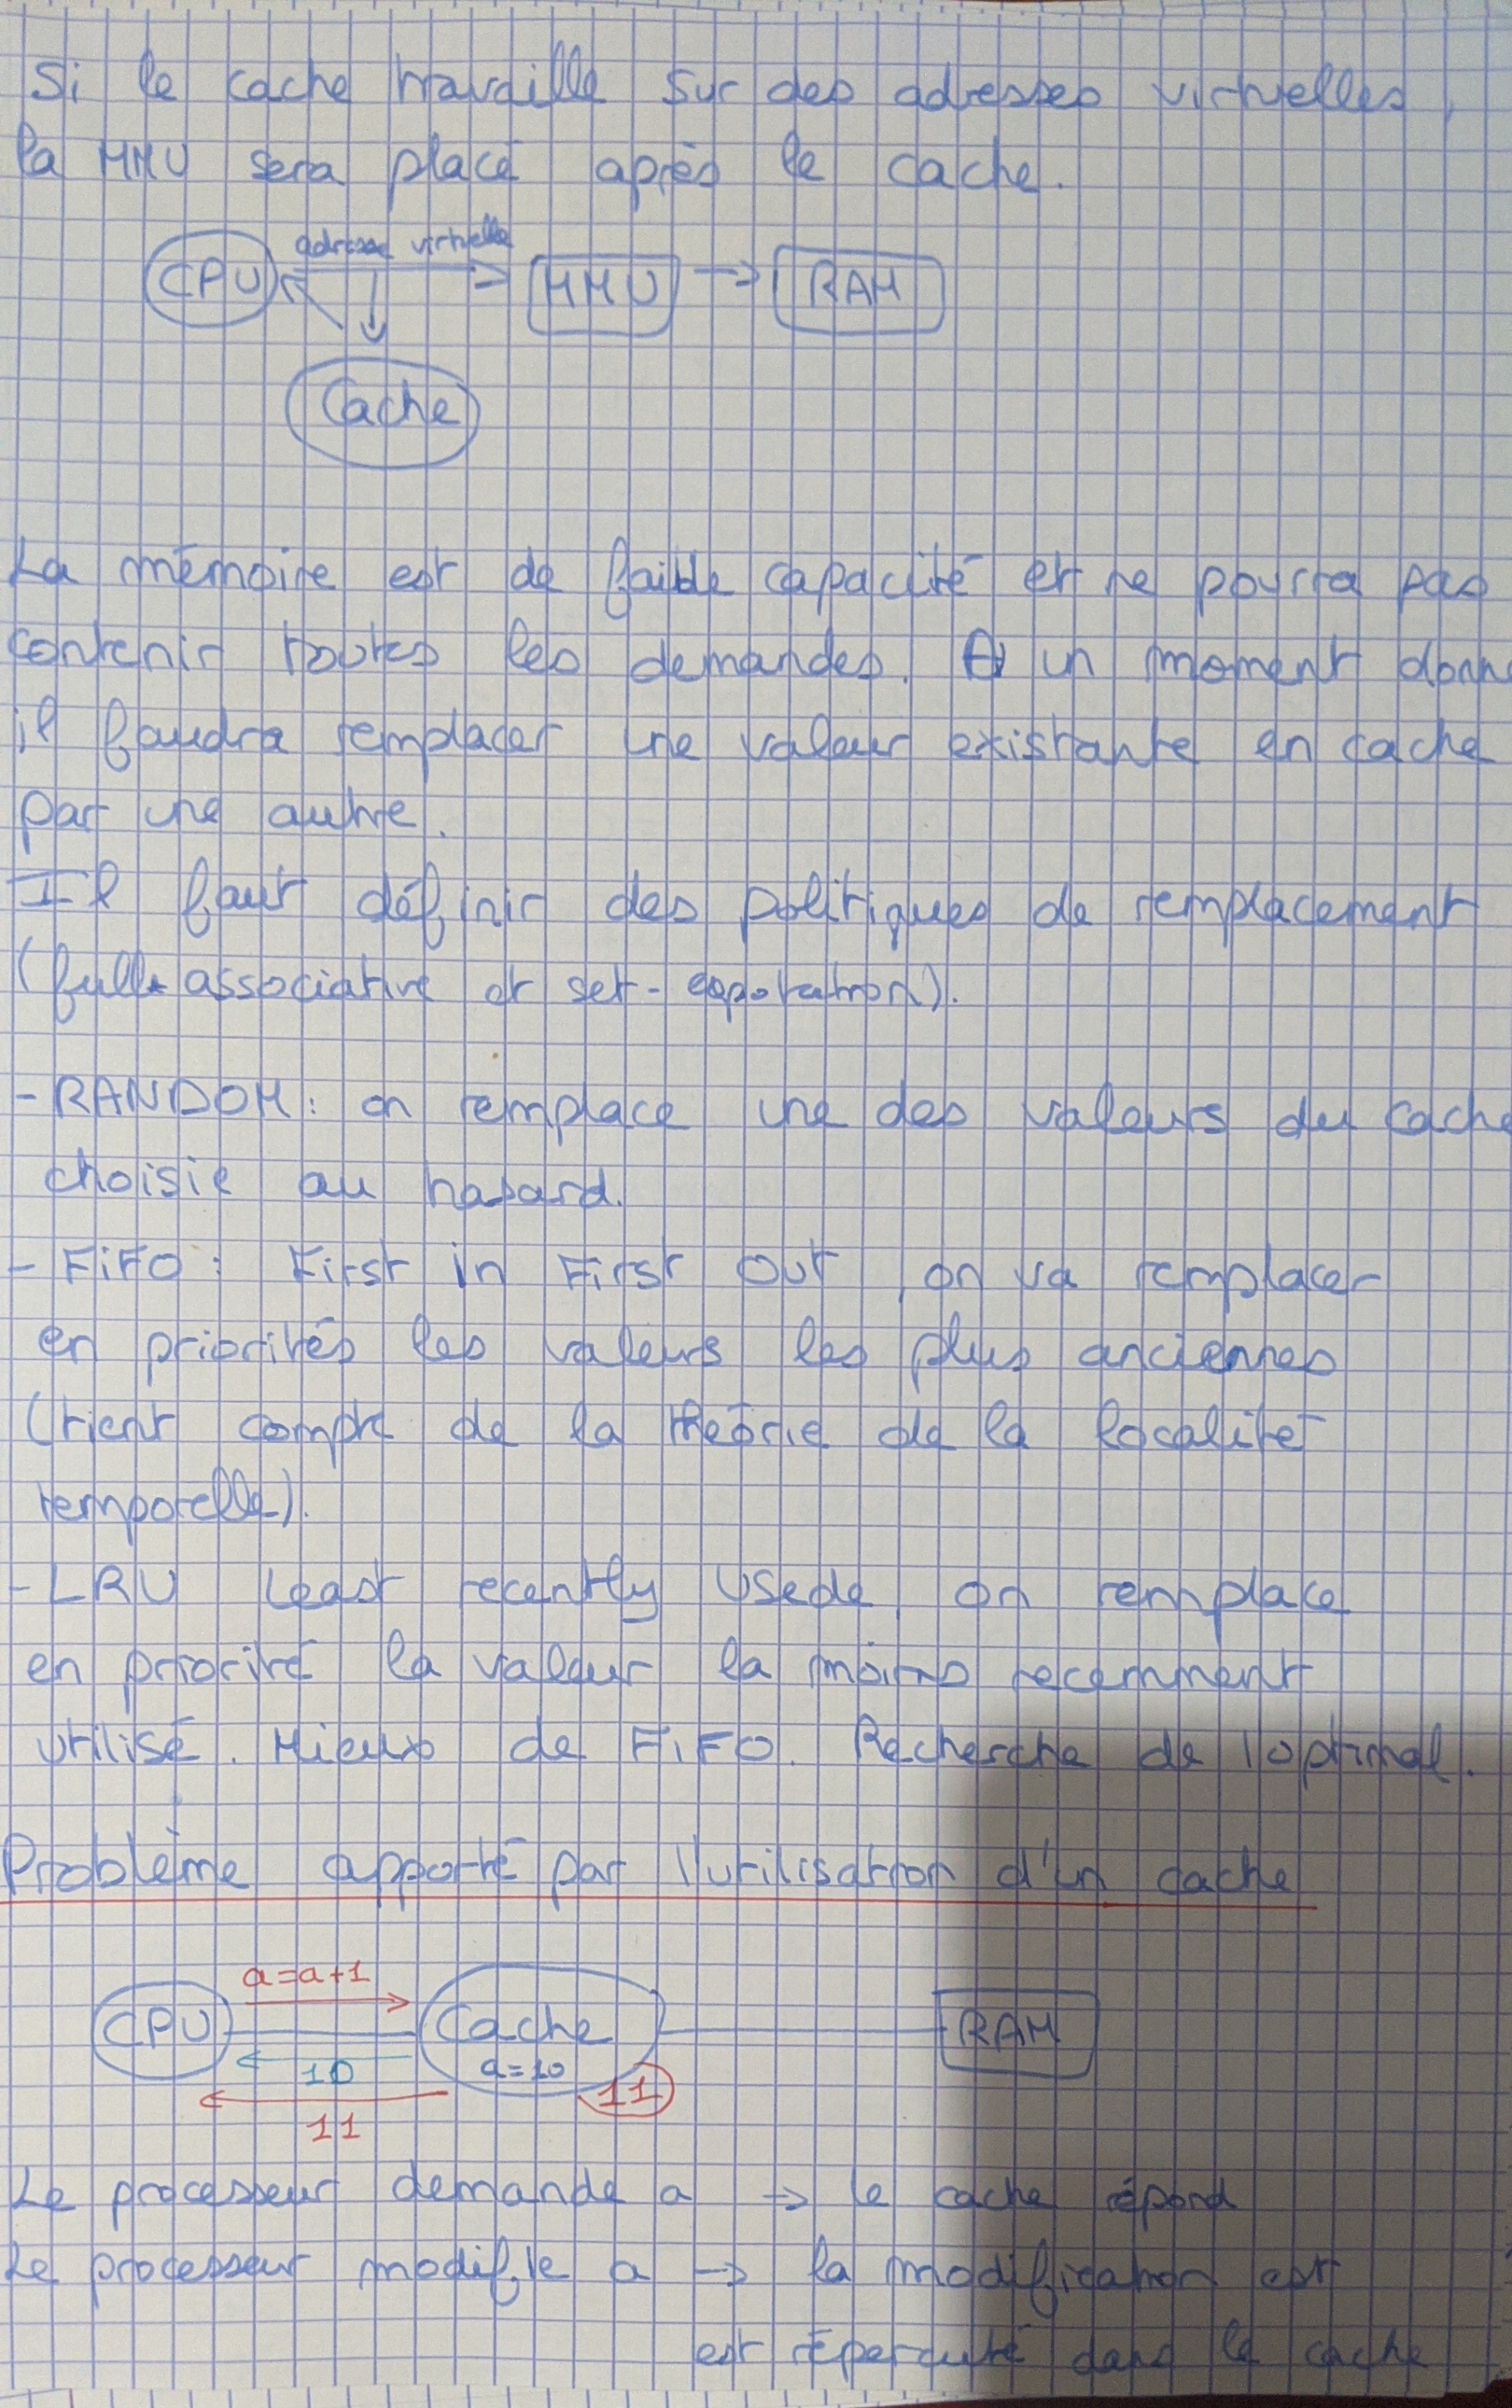 Si le cache travaille sur des adresses virtuelles,
la MMU sera placé après le cache.
adresse virtuelle
CPU MMU RAM
Cache
La mémoire est de faible capacité et ne pourra pas
contenir toutes les demandes. A un moment donn
il faudra remplacer une valeur existante en cache
par une autre.
Il faut définir des politiques de remplacement
(full associative et set-).
- RANDOM : on remplace une des valeurs du cache
choisie au hasard.
- FiFO : First in First Out, on va remplacer
en priorités les valeurs les plus anciennes
(tient compte de la théorie de la localité
temporelle).
- LRU Least recently Usede, on remplace
en priorité la valeur la moins recemment
utilisé. Mieux de FiFO. Recherche de l'optimal.
Problème apporté par l'utilisation d'un cache
a=a+1
CPU Cache RAM
10 a=10
11 11
Le processeur demande a → le cache répond
Le processeur modifie a → la modification est
est répercuté dans le cache